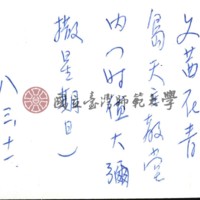 文茜在青
島天主教堂
內(时值大彌
撒星期日)
八三、十一
國立臺灣師範大學